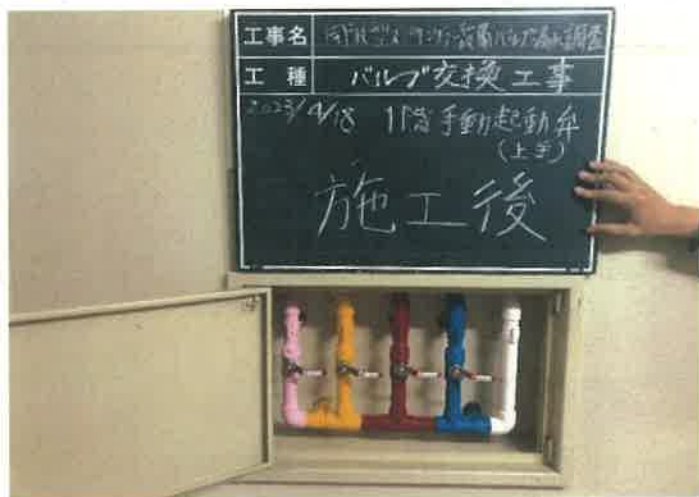 工事名 調査
工種 バルブ交換工事
2023/4/18 1階手動起動弁
(上手)
施工後